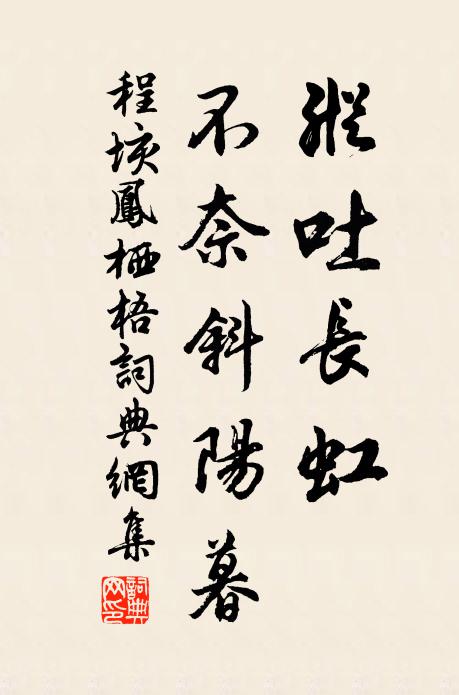 縱吐長虹
不奈斜陽暮
程垓鳳栖梧詞典網集
詞典網印